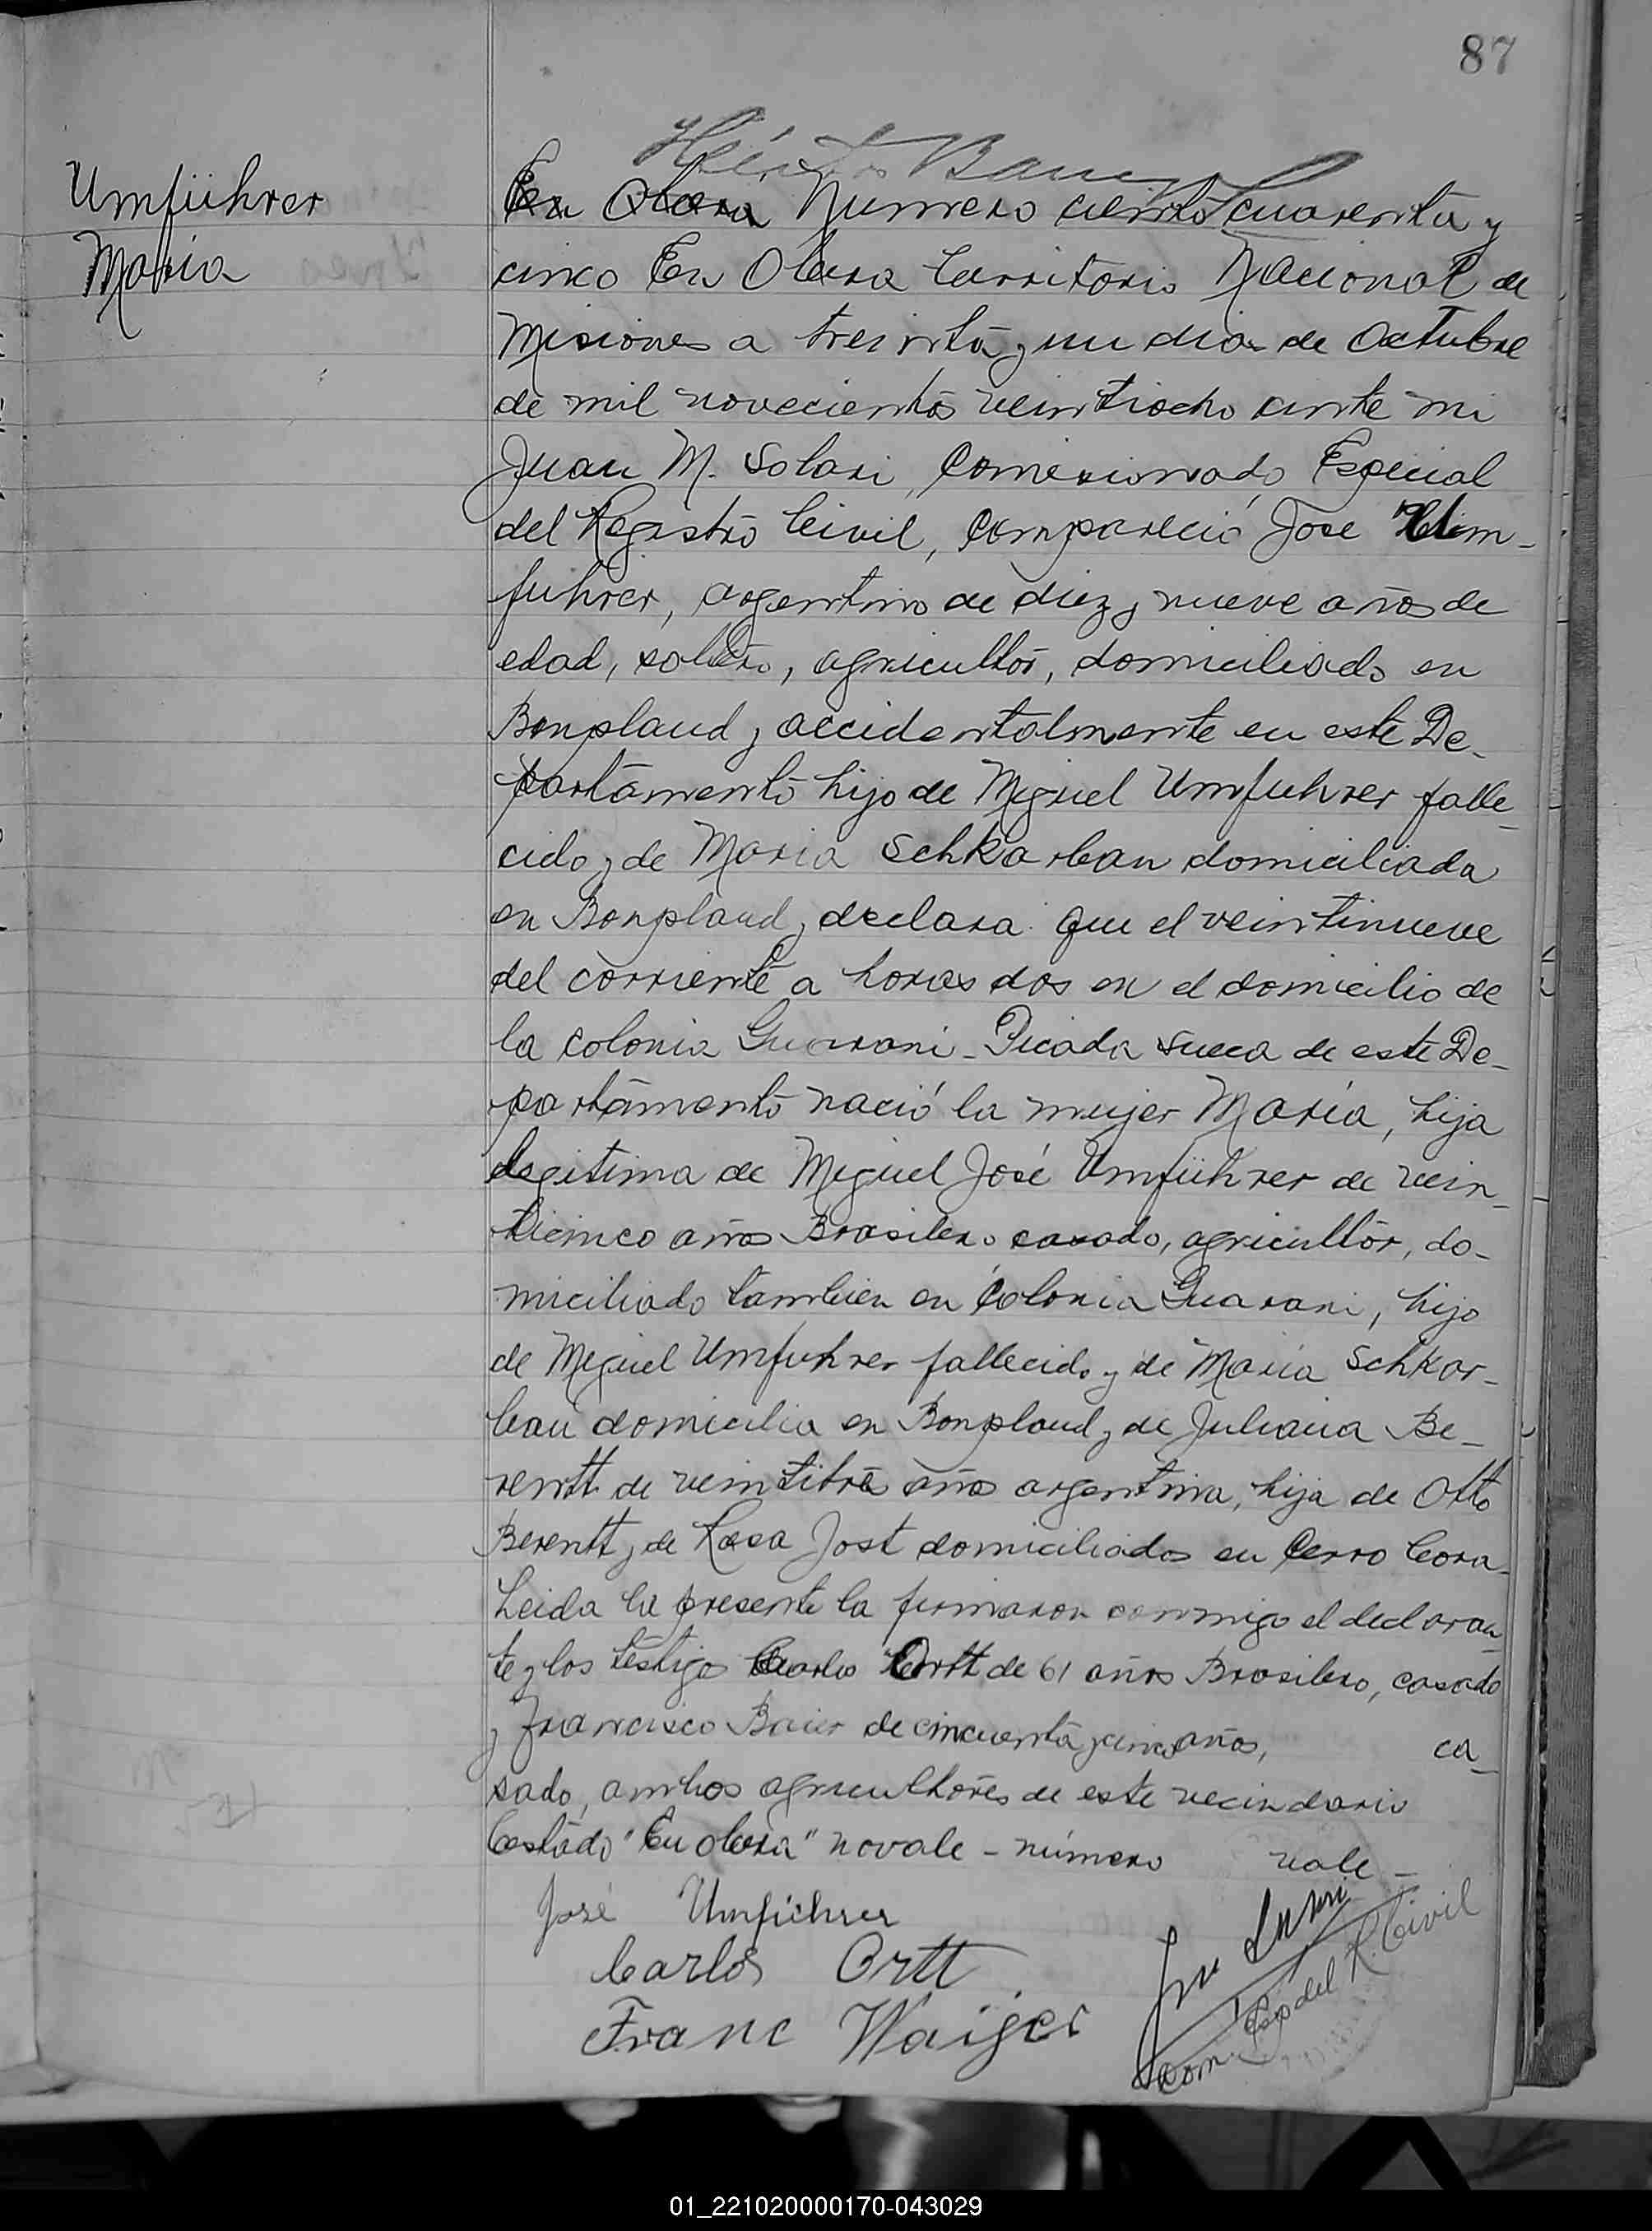 87
Umführer
Maria
En Obera Numero ciento cuarenta y
cinco En Obera territorio Nacional de
Misiones a treinta y un dias de Octubre
de mil novecientos veintiocho ante mi
Juan M. Solari, Comisionado Especial
del Registro Civil, Compareció Jose Um-
fuhrer, argentino de diez y nueve años de
edad, soltero, agricultor, domiciliado en
Bonpland y accidentalmente en este De-
partamento hijo de Miguel Umfuhrer falle-
cido y de Maria Schkarban domiciliada
en Bonpland y declara que el veintinueve
del corriente a horas dos en el domicilio de
la colonia Guarani - Picada sueca de este De-
partamento nació la mujer María, hija
legitima de Miguel José Umführer de vein-
ticinco años Brasilero casado, agricultor, do-
miciliado tambien en Colonia Guarani, hijo
de Miguel Umfuhrer fallecido y de Maria Schkar-
ban domicilia en Bonpland y de Juliana Be-
rentt de veintitrés años argentina, hija de Otto
Berentt y de Rosa Jost domiciliados en Cerro Cora
Leida la presente la firmaron conmigo el declaran-
te y los testigos Carlos Ortt de 61 años Brasilero, casado
y Francisco de cincuenta y cinco años, ca-
sado, ambos agricultores de este vecindario
Testado "En obera" no vale - número vale -
José Umführer
Carlos Ortt
Franc
del R. Civil
01_221020000170-043029